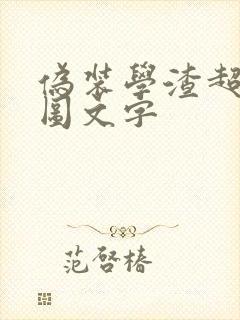 偽裝學渣超
圖文字
范啓椿